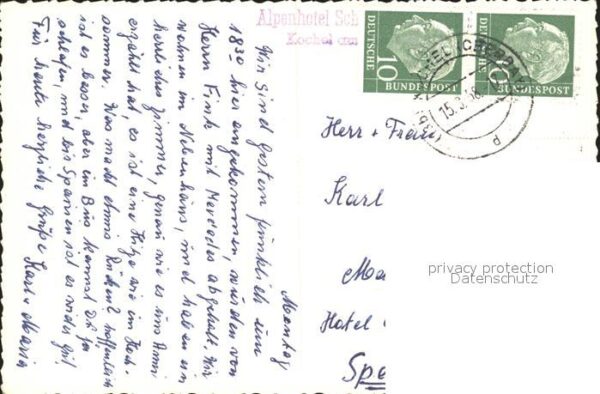 Alpenhotel Sch
Kochel am
DEUTSCHE
BUNDESPOST
10
DEUTSCHE
BUNDESPOST
10
KOCHEL
15.3.
d
Montag
Wir sind gestern pünktlich um
18 30 hier angekommen, wurden von
Herrn Fink mit Mercedes abgeholt. Wir
wohnen im Nebenhaus, und haben ein
herrliches Zimmer, genau wie es uns Anni
erzählt hat, es ist eine Hitze wie im Hoch-
sommer. Was macht Rücken? hoffentlich
ist es besser, aber im Bus kannst Du ja
schlafen, und bis Spanien ist es weit
Für heute herzliche Grüße Karl + Maria
Herr + Frau
Karl
Ma
Hotel
Spa
privacy protection
Datenschutz